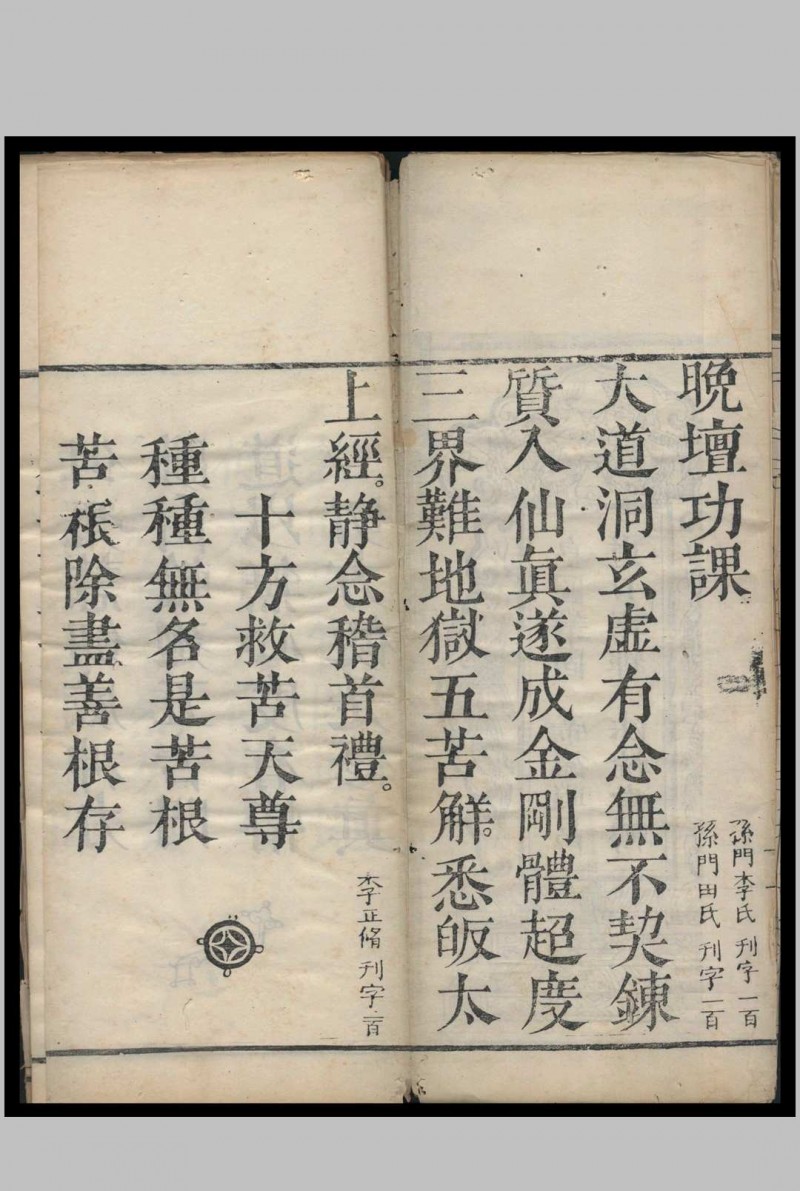 晚壇功課
孫門李氏 刊字一百
孫門田氏 刊字一百
大道洞玄虛有念無不契鍊
質入仙眞遂成金剛體超度
三界難地獄五苦觧。悉皈太
上經。静念稽首禮。
李正脩 刊字一百
十方救苦天尊
種種無名是苦根
苦根除盡善根存